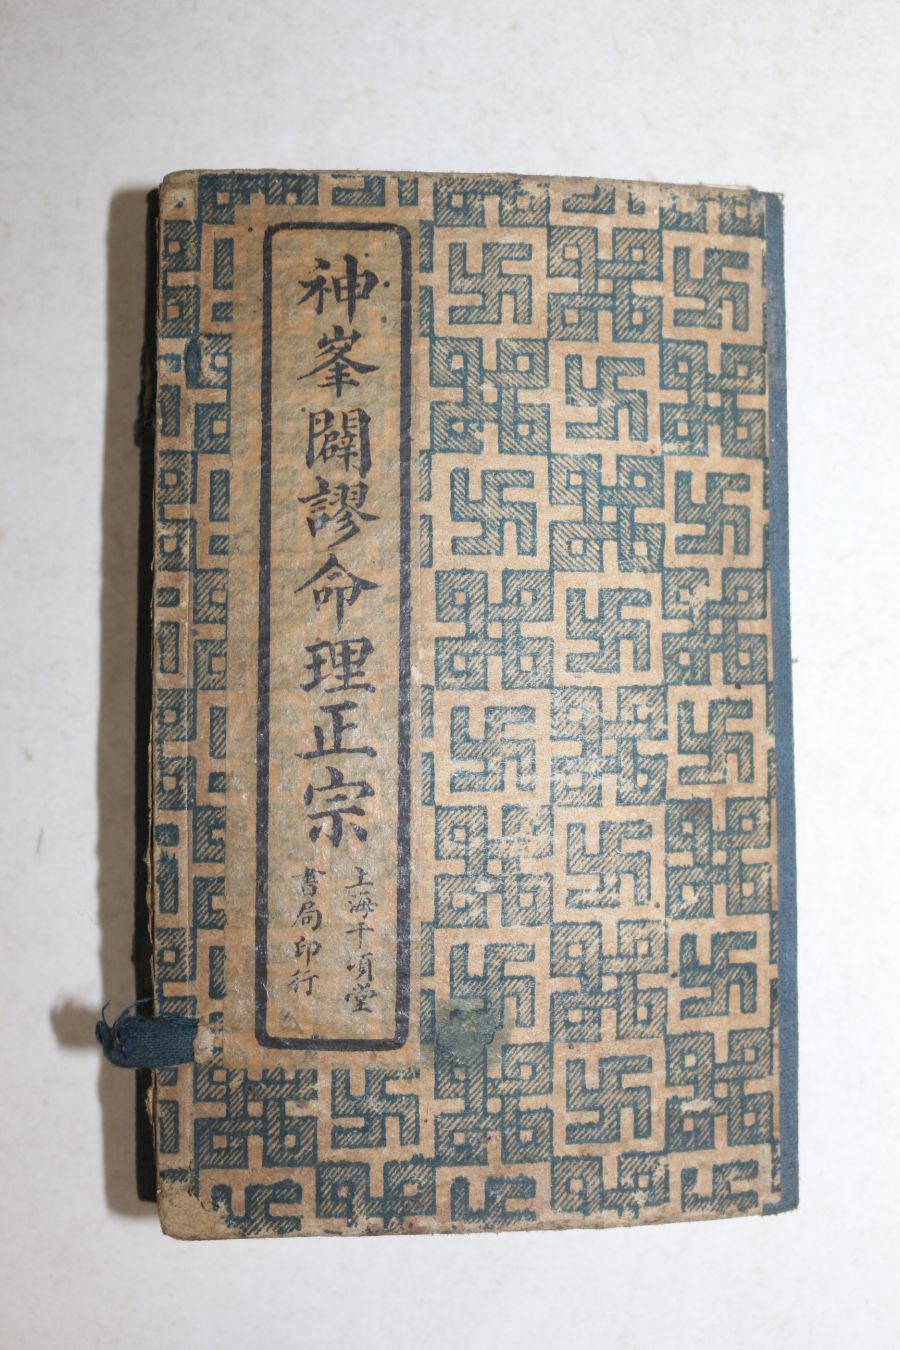 神峯闢謬命理正宗
上海千頃堂
書局印行